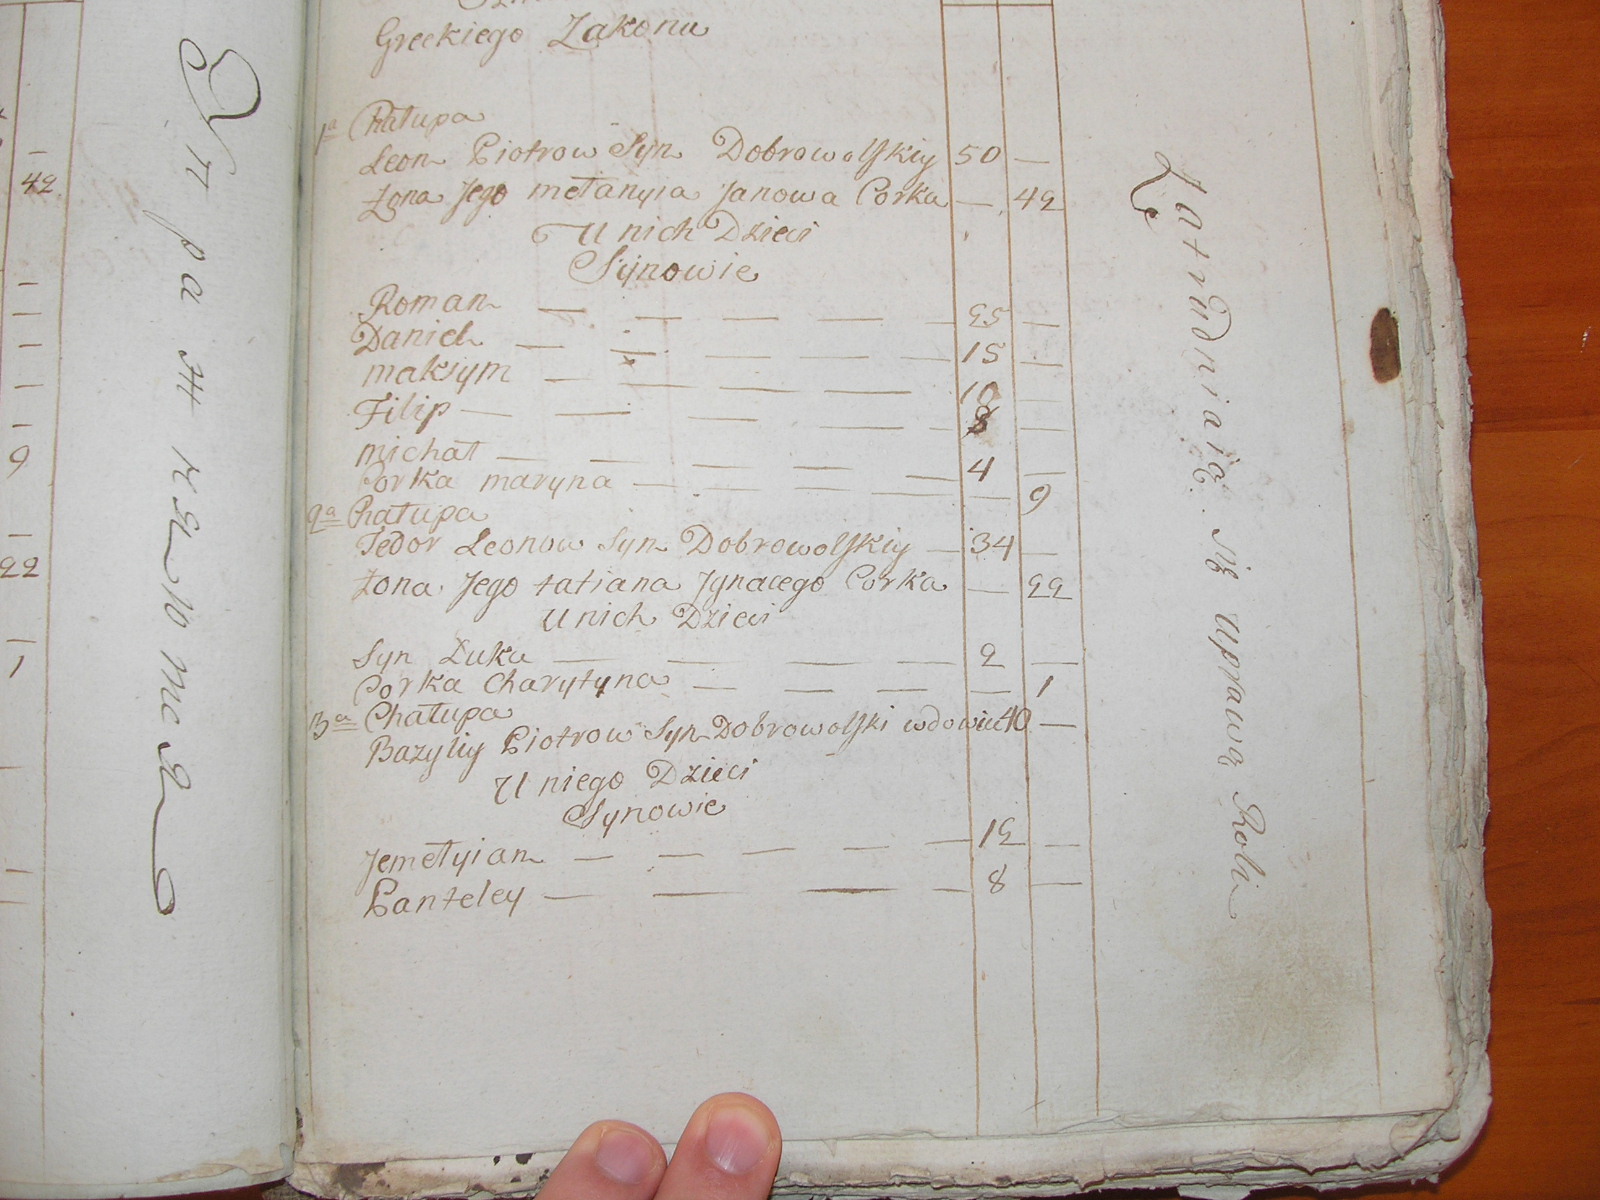 42
9
22
1
Greckiego Zakonu
1a Chałupa
Leon Piotrow Syn Dobrowolskiy 50 —
Żona Jego mełanyia Janowa Corka — 42
U nich Dzieci
Synowie
Roman — — — — — 25 —
Daniel — — — — — 15 —
maksym — — — — — 10 —
Filip — — — — — 8 —
michał — — — — — 4 —
Corka maryna — — — — — 9
2a Chałupa
Fedor Leonow Syn Dobrowolskiy — 34 —
Żona Jego tatiana Jgnacego Corka — 22
U nich Dzieci
Syn Łuka — — — — 2 —
Corka Charytyna — — — — 1
3a Chałupa
Bazyliy Piotrow Syn Dobrowolski wdowiec 40 —
U niego Dzieci
Synowie
Jemełyian — — — — — 12 —
Panteley — — — — 8 —
Zatrudniaią Się uprawą Roli